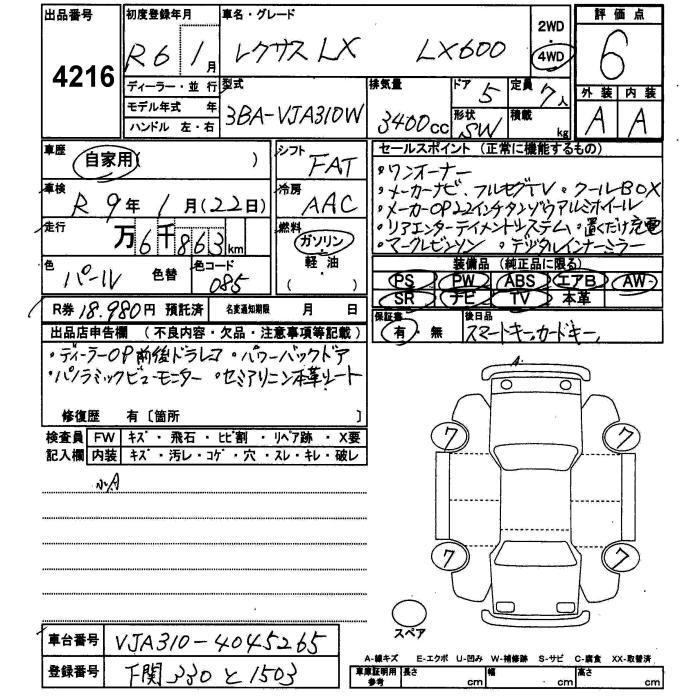 出品番号 4216
初度登録年月 R6年 1月
車名・グレード レクサス LX LX600
2WD・4WD
評価点 6
外装 A 内装 A
ディーラー・並行
モデル年式 年
ハンドル 左・右
型式 3BA-VJA310W
排気量 3400cc
ドア 5
形状 SW
定員 7人
積載 kg
車歴 自家用( )
シフト FAT
車検 R9年1月(22日)
冷房 AAC
走行 万6千863km
燃料 ガソリン・軽油 ( )
色 パール 色替
色コード 085
R券 18.980円 預託済 名変通知期限 月 日
セールスポイント (正常に機能するもの)
・ワンオーナー
・メーカーナビ、フルセグTV ・クールBOX
・メーカーOP22インチタンゾウアルミホイール
・リアエンターテイメントシステム ・置くだけ充電
・マークレビンソン ・デジタルインナーミラー
装備品 (純正品に限る)
PS PW ABS エアB AW
SR ナビ TV 本革
保証書 有・無
後日品 スマートキー、カードキー、
出品店申告欄 (不良内容・欠品・注意事項等記載)
・ディーラーOP前後ドラレコ ・パワーバックドア
・パノラミックビューモニター ・セミアリニン本革シート
修復歴 有〔箇所 〕
検査員記入欄
FW キズ・飛石・ヒビ割・リペア跡・X要
内装 キズ・汚レ・コゲ・穴・スレ・キレ・破レ
小A
A
7 7
7 7
スペア
車台番号 VJA310-4045265
登録番号 下関 330 と 1503
A-線キズ E-エクボ U-凹み W-補修跡 S-サビ C-腐食 XX-取替済
車庫証明用参考 長さ cm 幅 cm 高さ cm